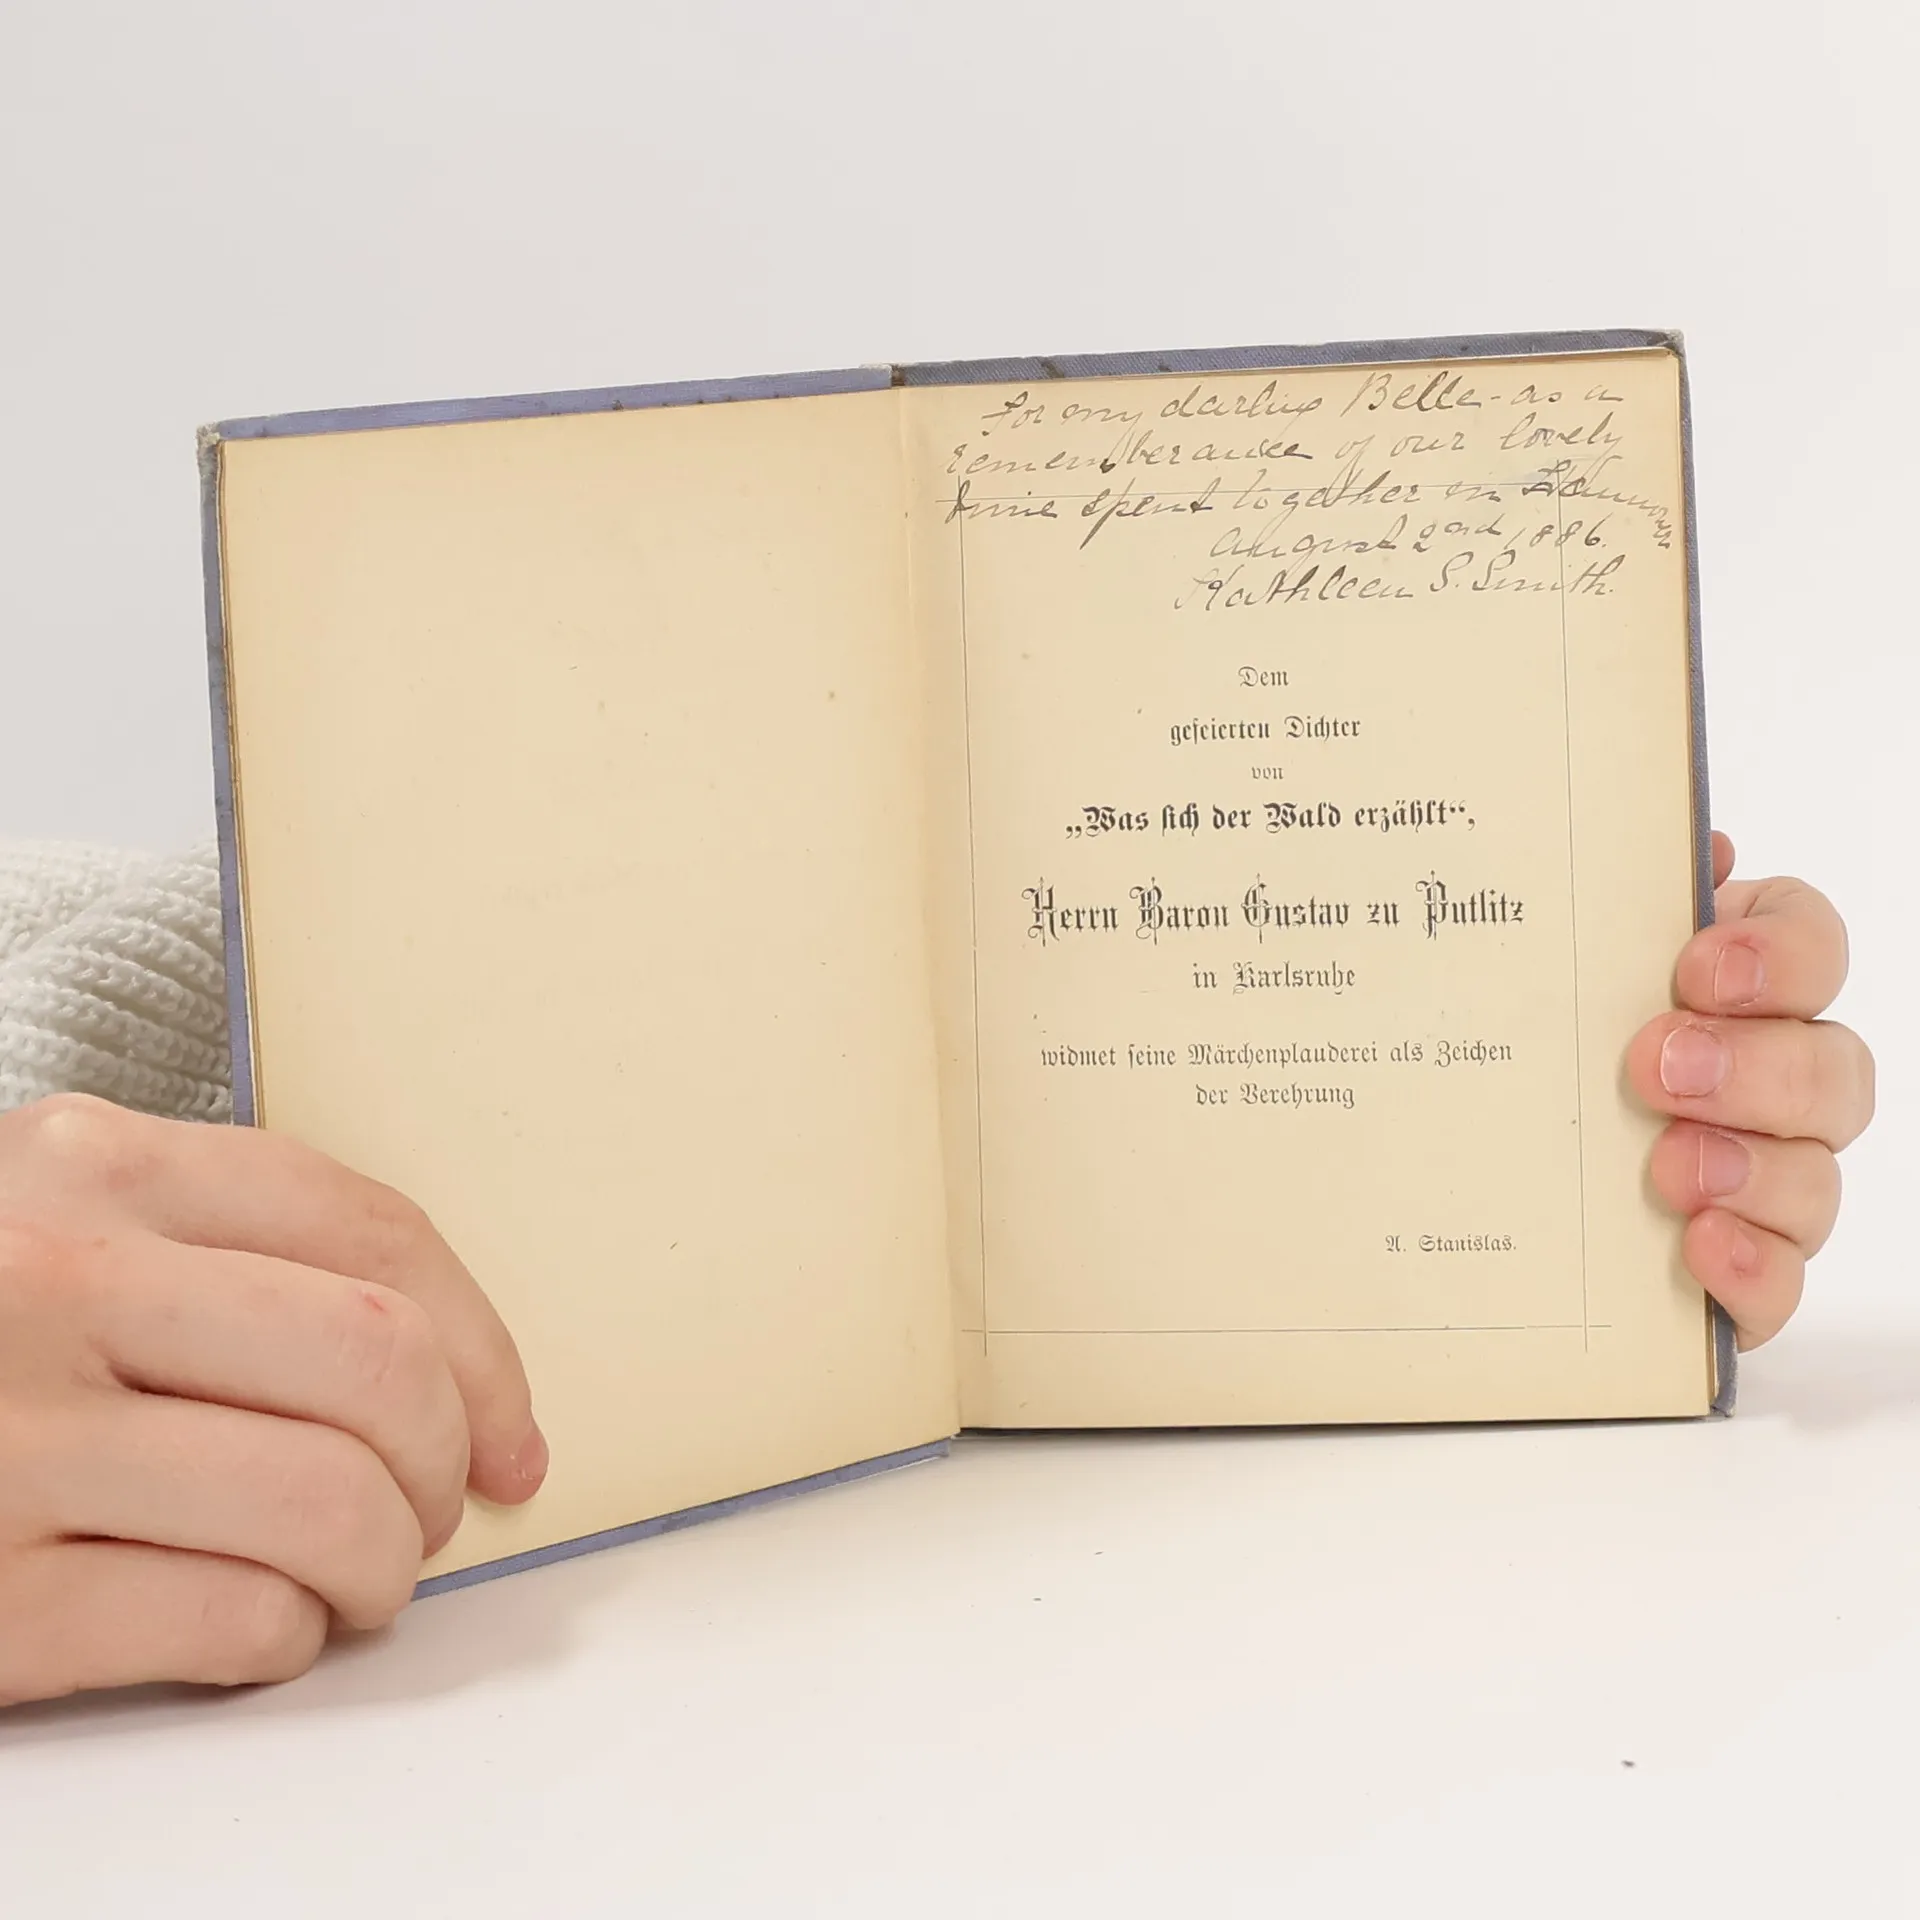 For my darling Belle - as a
rememberance of our lovely
time spent together in Hannover
August 2nd, 1886.
Kathleen S. Smith.
Dem
gefeierten Dichter
von
„Was sich der Wald erzählt“,
Herrn Baron Gustav zu Putlitz
in Karlsruhe
widmet seine Märchenplauderei als Zeichen
der Verehrung
A. Stanislas.